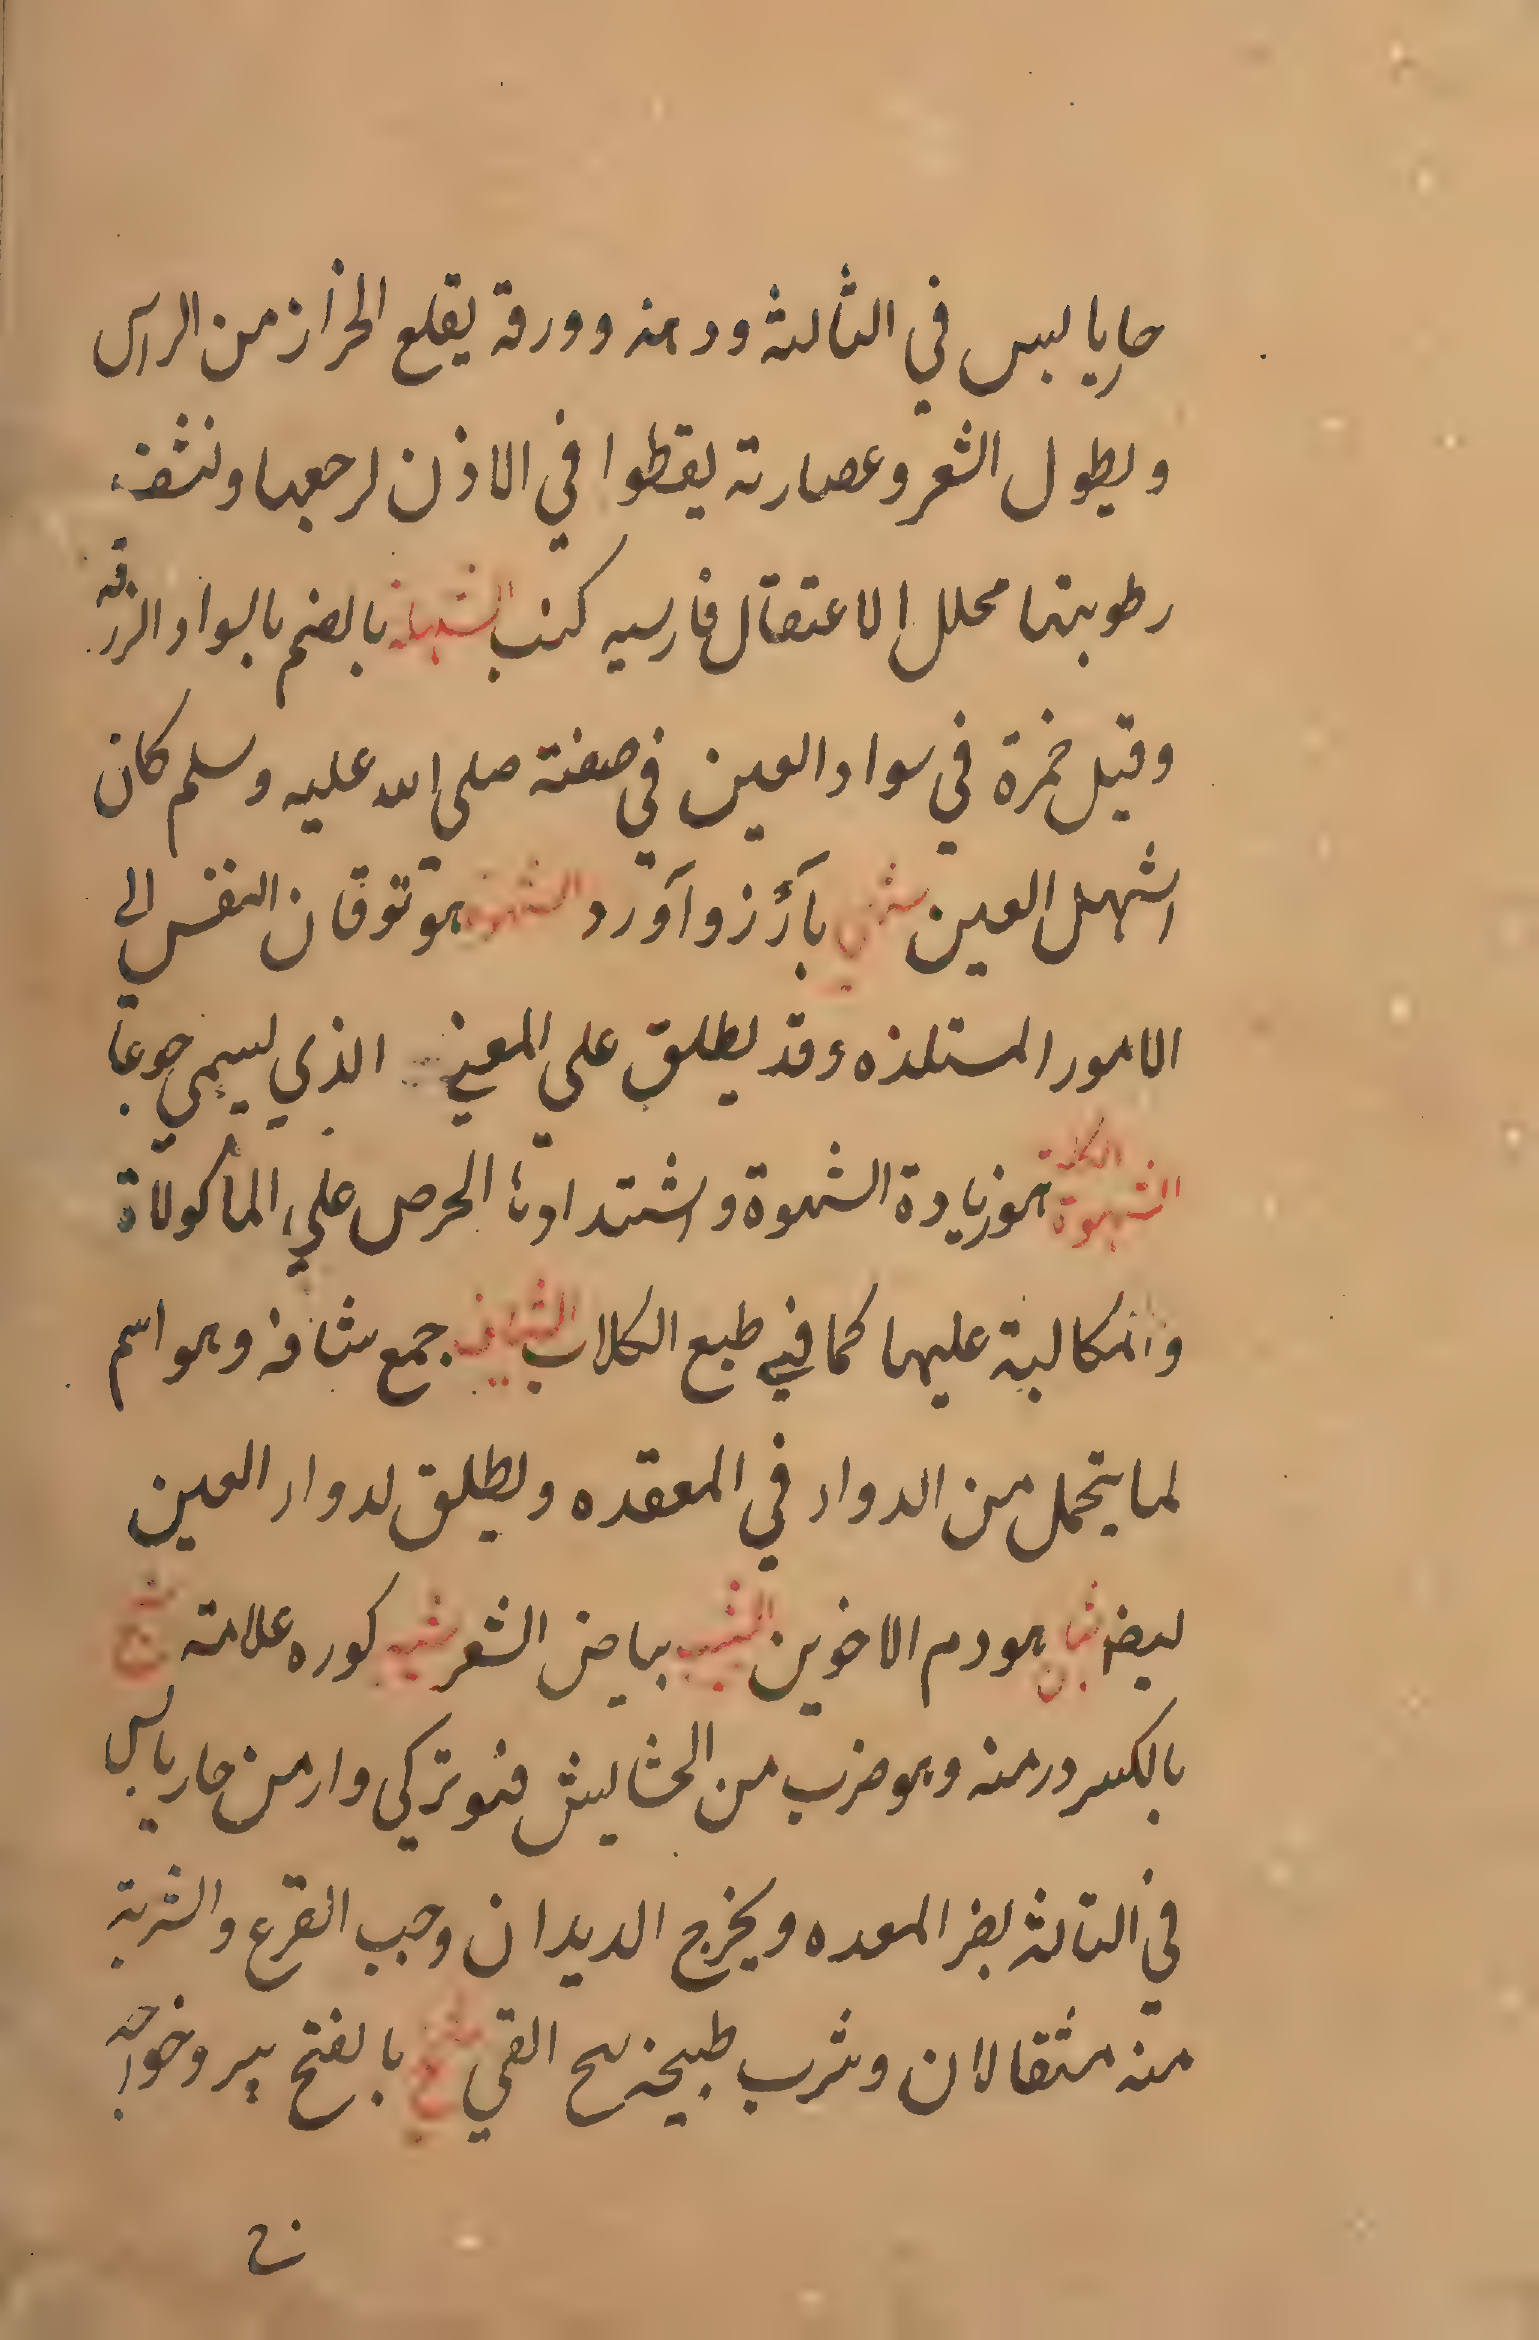 حار يا لبس في الثالثة ودهنه وورقة يقلع الحزاز من الراس
ويطول الشعر وعصارته يقطوا في الاذن لرجعها ونشف
رطوبتها محلل الاعتقال فارسيه كنب الشهلة بالضم بالسواد الزرقه
وقيل خمرة في سواد العين في صفته صلى الله عليه وسلم كان
اشهل العين شهي بآرزو آورد الشهوة هو توقان النفس الى
الامور المستلذه وقد يطلق على المعنى الذي يسمى جوعا
الشهوة الكلبة هو زيادة الشهوة واشتداد الحرص علي الماكولاة
والمكالبة عليها كما في طبع الكلاب الشياف جمع شافه وهو اسم
لما يتحمل من الدواء في المعقده ويطلق لدواء العين
ليضا شيان هو دم الاخوين الشيب بياض الشعر شيه كوره علامته شيح
بالكسر درمنه وهو ضرب من الحشاليش فنو تركي وارمن حار يابس
في الثالثه يضر المعده ويخرج الديدان وحب القرع والشربة
منه مثقالان وشرب طبيخه القي شيخ بالفتح پير وخواجه